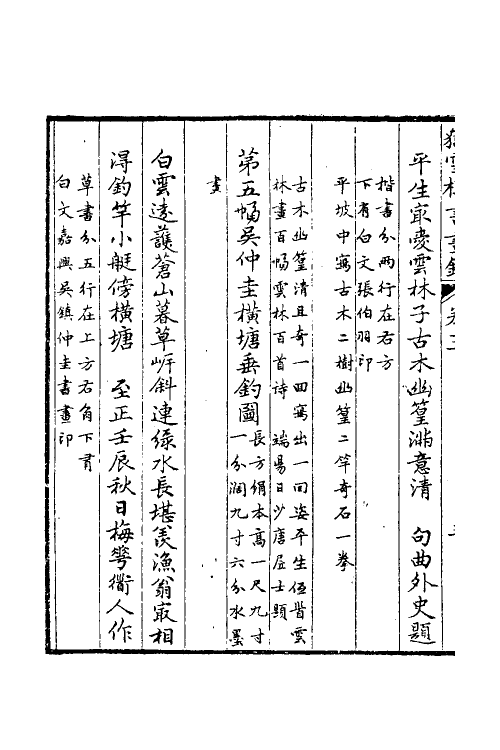 平生㝡愛雲林子古木幽篁澹意清　句曲外史題
楷書分兩行在右方
下有白文張伯羽印
平坡中寫古木二樹幽篁二竿奇石一拳
古木幽篁清且奇一回寫出一回姿平生伍㫮雲
林畫百幅雲林百首詩　端陽日沙唐居士題
第五幅吳仲圭橫塘垂釣圖
長方絹本高一尺九寸
一分濶九寸六分水墨
畫
白雲遠護蒼山暮草岸斜連綠水長堪羨漁翁㝡相
淂釣竿小艇傍橫塘　至正壬辰秋日梅花衜人作
草書分五行在上方右角下有
白文嘉興吳鎮仲圭書畫印